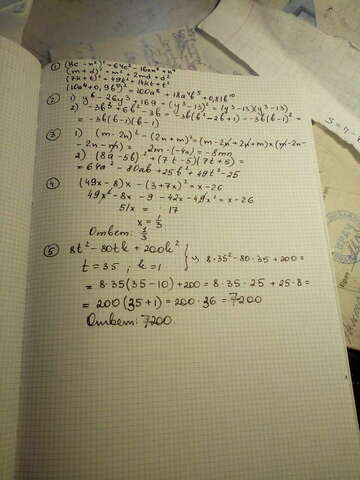 ① (8c - x²)² = 64c² - 16xx² + x⁴
(m + d)² = m² + 2md + d²
(7k + t)² = 49k² + 14kt + t²
(10a⁴ + 0,9b⁵)² = 100a⁸ + 18a⁴b⁵ + 0,81b¹⁰
② 1) y⁶ - 26y³ + 169 = (y³ - 13)² = (y³ - 13)(y³ - 13)
2) -3b³ + 6b² - 3b = -3b(b² - 2b + 1) = -3b(b - 1)² =
= -3b(b - 1)(b - 1)
③ 1) (m - 2n)² - (2n + m)² = (m - 2n + 2n + m)(m - 2n -
- 2n - m) = 2m · (-4n) = -8mn
2) (8a - 5b)² + (7t - 5)(7t + 5) =
= 64a² - 80ab + 25b² + 49t² - 25
④ (49x - 8)x - (3 + 7x)² = x - 26
49x² - 8x - 9 - 42x - 49x² = x - 26
51x = 17
x = 1/3
Ответ: 1/3
⑤ 8t² - 80tk + 200k²
t = 35, k = 1 } 8·35² - 80·35 + 200 =
= 8·35(35 - 10) + 200 = 8·35·25 + 25·8 =
= 200(35 + 1) = 200·36 = 7200
Ответ: 7200.